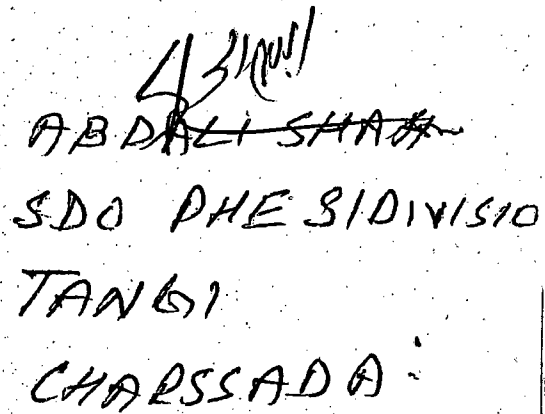 ABDALI SHAH
SDO PHE S/DIVISIO
TANGI
CHARSSADA